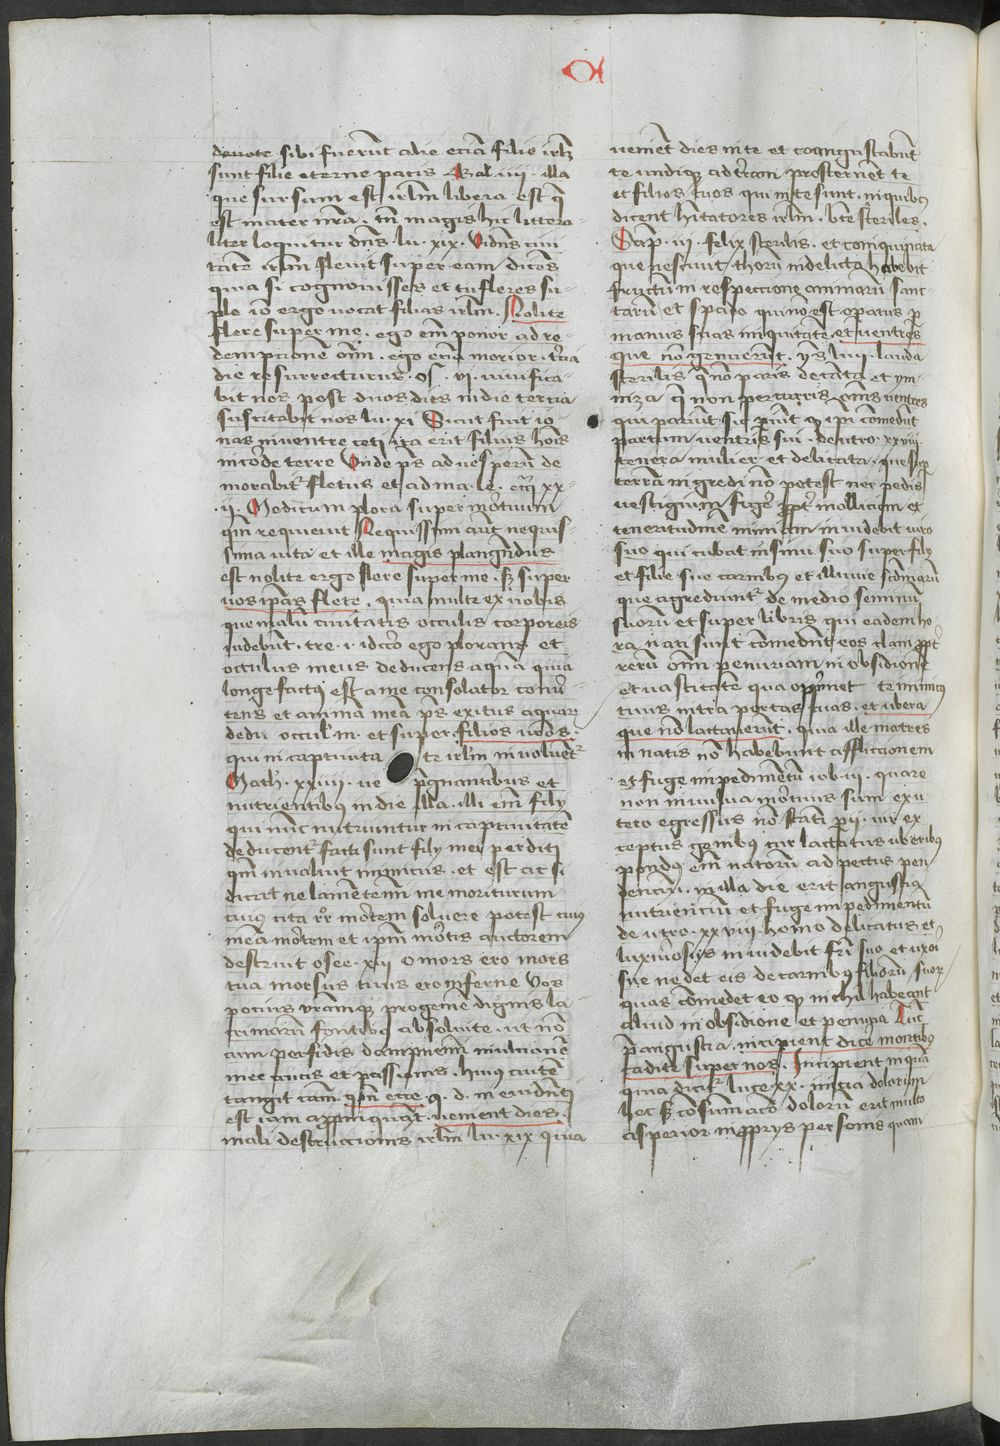 deuote sibi fuerūt alie eciā filie irlm̄
sunt filie eterne pacis Gal iiii illa
que sursum est irlm̄ libera est q̄
est mater nr̄a . tn̄ magis hic littera-
liter loquitur dn̄s lu. xix. Vidn̄s ciui
tatē irlm̄ fleuit super eam dicēs
quia si cognouisses et tu fleres su-
ple iō ergo vocat filias irlm̄ . Nolite
flere super me . ego em̄ ponor ad re-
dempcionē om̄ . ego eciā morior . t̄cia
die resurrecturus . os . vi . viuifica-
bit nos post duos dies in die tercia
suscitabit nos lu. xi Sicut fuit io-
nas in ventre ceti ita erit filius hōis
in corde terre Vnde ps̄ ad vesperū de
morabit̄ fletus et ad ma. le . ecci xx-
.ii. Modicum plora super mortuum
qm̄ requieuit Nequissimi aūt nequis-
sima vita et ille magis plangendus
est nolite ergo flere super me . sꝫ super
vos ip̄as flete . quia multe ex vobis
que malū ciuitatis occulis corporeis
videbūt . tre . i . idcirco ego plorans et
occulus meus deducens aquā quia
longe factus est a me consolator conu̾-
tens et animā meā ps̄ exitus aquar̄
dedu occul m̄ . et super filios vr̄os .
qui in captiuita te irlm̄ inuoluēt̄
Math . xxiiii . ve p̄gnantibus et
nutrientibus in die illa . illi em̄ filij
qui nūc nutriuntur in captiuitatē
deducent̄ facti sunt filij mei perditi
qm̄ inualuit inimicus . et est ac si
dicat ne lamētemī me moriturum
cuius cita rr̄ mortem soluere potest cuius
meā mortem et ipm̄ mortis auctorem
destruit osee . xiii o mors ero mors
tua morsus tuus ero inferne Vos
pocius vr̄amqꝫ progeniē dignis la-
crimarū fontibus absoluite . ut nō
cum perfidis dampnemī in vlcionē
mee crucis et passionis . huius autē
tangit cām̄ . qm̄ ecce . q . d . in euidenti
est iam appropinquat . venient dies .
mali destruccionis irlm̄ lu xix quia
venient dies in te et coangustabūt
te vndiqꝫ ad t̄ram prosternēt te
et filios tuos qui in te sunt . in quibus
dicent h̄itatores irlm̄ . bt̄e steriles .
Sap̄ . iii . felix sterilis . et coinquinata
que nesciuit thorū in delicto habebit
fructū in respeccione animarū sanc-
tarū et spado qui nō est operatus p̄
manus suas iniquitatē . et ventres
que nō genuerūt . ys̄ liiii . lauda
sterilis q̄ nō paris decāta et ym-
niza q̄ non perturis om̄s ventres
qui pariūt sic pariūt qꝫ ip̄i comedēt
partum ventris sui . deutro . xxviii .
tenera mulier et delicata . que super
terrā ingredi nō potest nec pedis
vestigium fig̾e ꝓpt̄ molliciem et
teneritudinē nimiam inuidebit viro
suo qui cubat in sinu suo super filij
et filie sue carnibus et illuuie scd̄arū
que agrediunt̄ de medio seminū
suorū et super libris qui eadem ho
ra nati sunt comedēt eos clam ꝓpt̄
rerū om̄ penuriam in obsidione
et vastitate qua opp̄met te inimicus
tuus intra portas suas . et vbera
que nō lactauerūt . quia ille matres
in natis nō habebunt affliccionem
et fuge impedimētū iob . iii . quare
non in vulua mortuus sum exu-
tero egressus nō stati perii . cur ex
ceptus genibus cur lactatus vberibus
pondus em̄ natorū ad pectus pen
dencium in illa die erit angustia
nutriencium et fuge impedimentū
deutro . xxviii . homo delicatus et
luxuriosus inuidebit fr̄i suo et vxori
sue ne det eis de carnibus filiorū suor̄
quas comedet eo qꝫ nichil habeant
aliud in obsidione et penuria Tūc
p̄ angustia . incipient dic̾e montibus
cadite super nos . Incipient inquā
quia dicit̄ luce xx . inicia dolorum
hec sꝫ consumacō dolorū erit multo
asperior in propriis personis quam